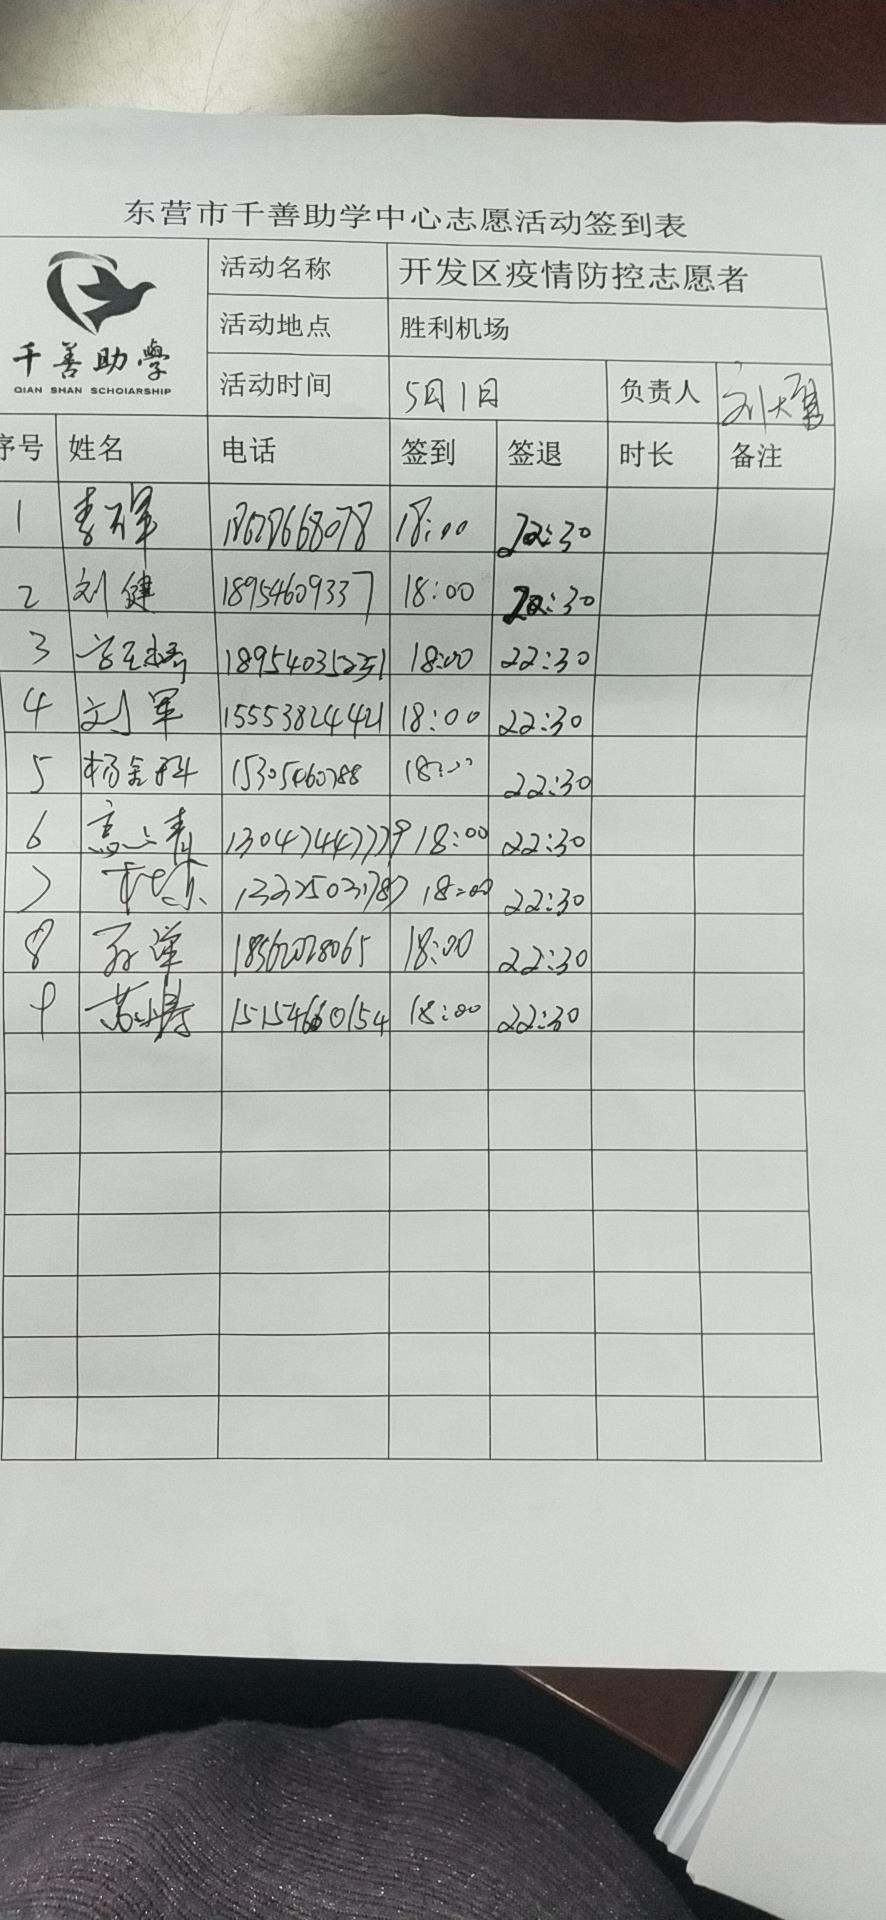 东营市千善助学中心志愿活动签到表
千善助學
QIAN SHAN SCHOIARSHIP
活动名称 开发区疫情防控志愿者
活动地点 胜利机场
活动时间 5月1日 负责人 刘大勇
序号 姓名 电话 签到 签退 时长 备注
1 18:00 22:30
2 刘健 18954609337 18:00 22:30
3 18:00 22:30
4 刘军 15553824421 18:00 22:30
5 杨金科 15305460788 18:00 22:30
6 18:00 22:30
7 18:00 22:30
8 孙洋 18562028065 18:00 22:30
9 15154660154 18:00 22:30